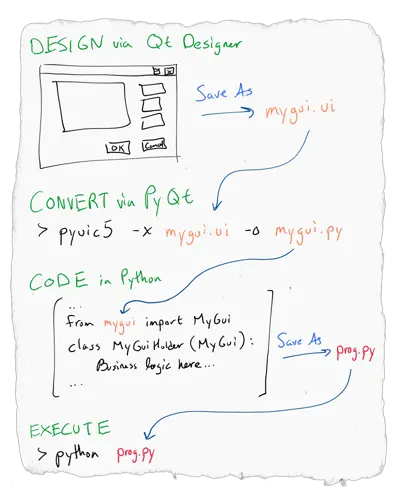 DESIGN via Qt Designer
Save As
mygui.ui
OK Cancel
CONVERT via PyQt
> pyuic5 -x mygui.ui -o mygui.py
CODE in Python
...
from mygui import MyGui
class MyGuiHolder (MyGui):
Business logic here...
...
Save As
prog.py
EXECUTE
> python prog.py